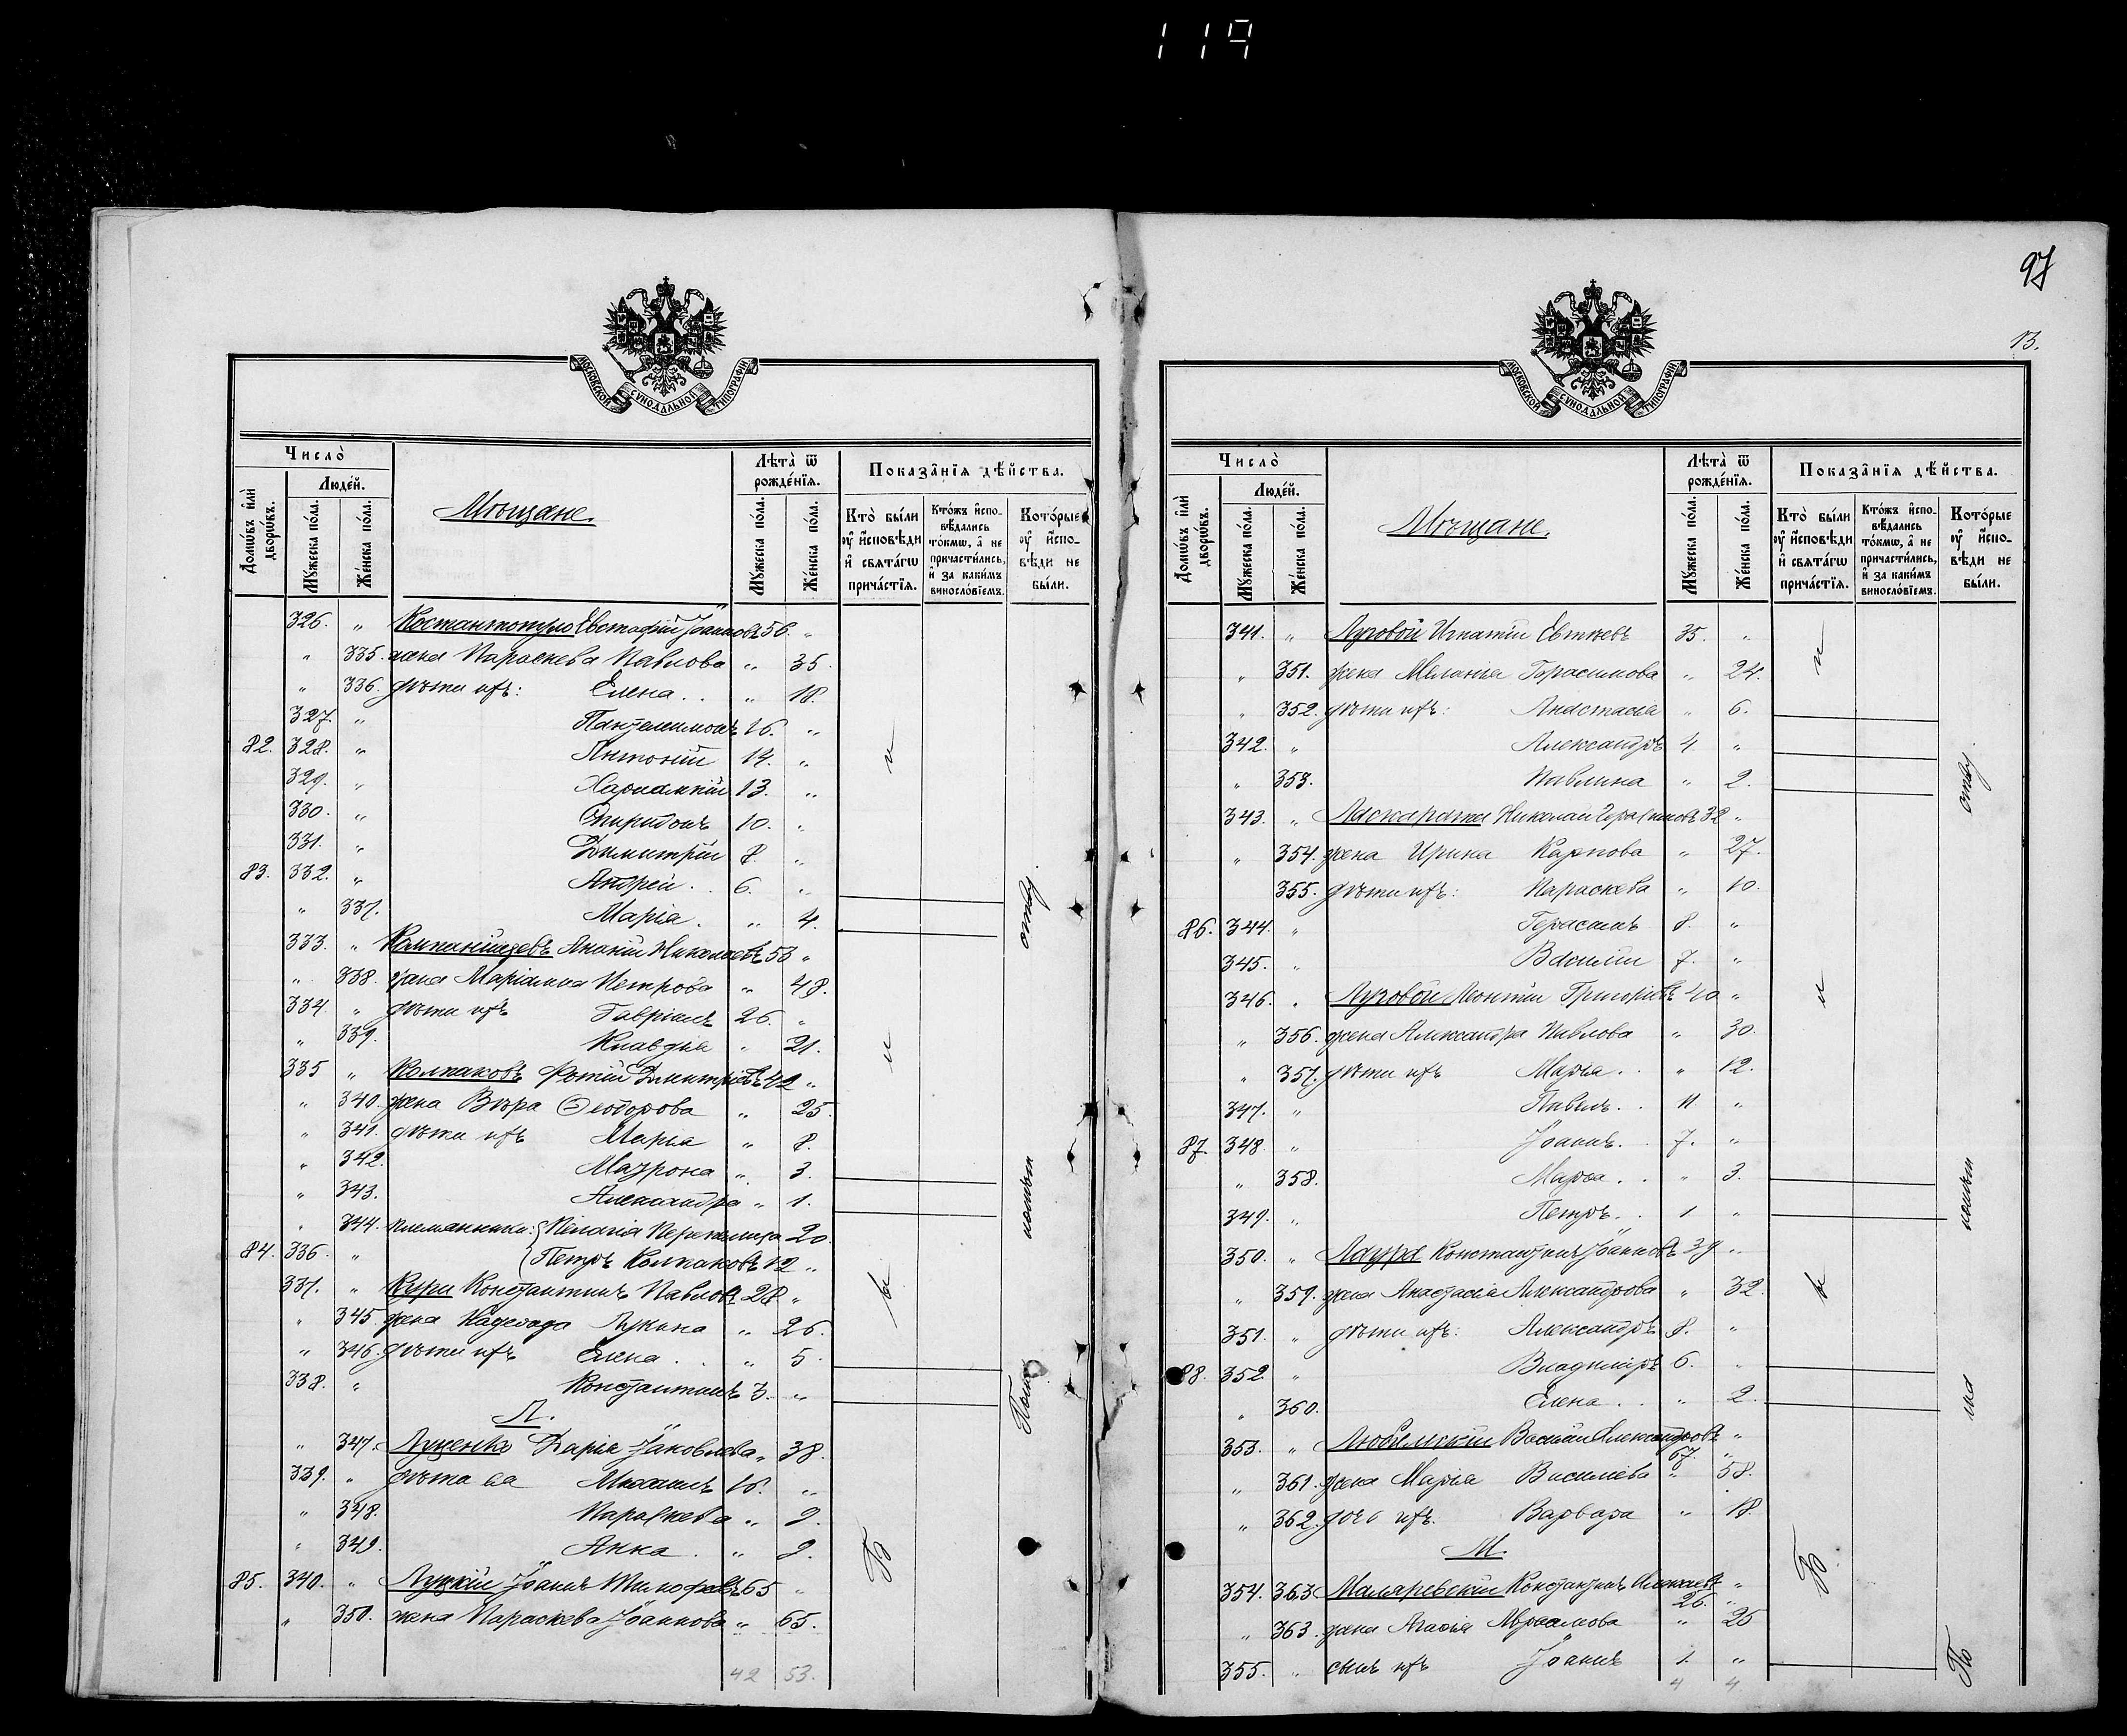 119
97
13.
МОСКОВСКОЙ СУНОДАЛЬНОЙ ТИПОГРАФІИ
Число̀
Домѡвъ и҆лѝ дворѡвъ.
Люде́й.
Мꙋ́жеска по́ла.
Же́нска по́ла.
Мѣщане.
Лѣта̀ ѿ рожде́нїѧ.
Мꙋ́жеска по́ла.
Же́нска по́ла.
Показа̑нїѧ дѣ́йства.
Кто̀ бы́ли ᲂу҆ и҆сповѣ́ди и҆ свѧта́гѡ прича́стїѧ.
Кто́жъ и҆спо­вѣ́дались то́кмѡ, а҆ не причасти́лись, и҆ за каки́мъ виносло́вїемъ.
Кото́рые ᲂу҆ и҆спо­вѣ́ди не бы́ли.
326. „ Костантопуло Евстафій Іоанновъ 56. „
„ 335. жена Параскева Павлова „ 35.
„ 336. дѣти ихъ: Елена . . „ 18.
327. „ Пантелеимонъ 16. „
82. 328. „ Антоній 14. „
329. „ Харлампій 13. „
330. „ Спиридонъ 10. „
331. „ Димитрій 8. „
83. 332. „ Андрей . . 6. „
„ 337. Марія . „ 4.
333. „ Компанійцевъ Ананій Николаевъ 53 „
„ 338. жена Маріанна Петрова „ 48.
334. „ дѣти ихъ Гавріилъ 26. „
„ 339. Клавдія „ 21.
335 „ Колпаковъ Фотій Димитріевъ 42 „
„ 340. жена Вѣра Ѳеодорова „ 25.
„ 341. дѣти ихъ Марія „ 8.
„ 342. Матрона „ 3.
„ 343. Александра „ 1.
„ 344. племянники: Пелагія 20.
84. 336. „ Петръ Колпаковъ 12 „
337. „ Кури Константинъ Павловъ 28 „
„ 345. жена Надежда Лукина „ 26.
„ 346. дѣти ихъ Елена . . „ 5.
338. „ Константинъ 3. „
Л.
„ 347. Луценко Дарія Іаковлева „ 38.
339. „ дѣти ея Михаилъ 16. „
„ 348. Параскева „ 9.
„ 349. Анна . „ 9.
85. 340. „ Луцкій Іоаннъ Тимофеевъ 65 „
„ 350. жена Параскева Іоаннова „ 65.
42 53.
МОСКОВСКОЙ СУНОДАЛЬНОЙ ТИПОГРАФІИ
Число̀
Домѡвъ и҆лѝ дворѡвъ.
Люде́й.
Мꙋ́жеска по́ла.
Же́нска по́ла.
Мѣщане.
Лѣта̀ ѿ рожде́нїѧ.
Мꙋ́жеска по́ла.
Же́нска по́ла.
Показа̑нїѧ дѣ́йства.
Кто̀ бы́ли ᲂу҆ и҆сповѣ́ди и҆ свѧта́гѡ прича́стїѧ.
Кто́жъ и҆спо­вѣ́дались то́кмѡ, а҆ не причасти́лись, и҆ за каки́мъ виносло́вїемъ.
Кото́рые ᲂу҆ и҆спо­вѣ́ди не бы́ли.
341. „ Луговой Игнатій Евтиевъ 35. „
„ 351. жена Меланія Герасимова „ 24.
„ 352. дѣти ихъ: Анастасія „ 6.
342. „ Александръ 4 „
„ 353. Павлина „ 2.
343. „ Ласкарати Николай Герасимовъ 32 „
„ 354. жена Ирина Карпова „ 27.
355. дѣти ихъ: Параскева „ 10.
86. 344. „ Герасимъ 8. „
345. „ Василій 7. „
346. „ Луговой Леонтій Григорьевъ 40 „
„ 356. жена Александра Павлова „ 30.
„ 357. дѣти ихъ Марія . . „ 12.
347. „ Павелъ . . 11. „
87 348. „ Іоаннъ . . 7. „
„ 358. Марѳа . . „ 3.
349. „ Петръ . . 1 „
350. „ Лаура Константинъ Іоанновъ 39 „
„ 359. жена Анастасія Александрова „ 32.
351. „ дѣти ихъ: Александръ 8. „
88. 352. „ Владиміръ 6. „
„ 360. Елена . . „ 2.
353. „ Любимскій Василій Александровъ 67. „
„ 361. жена Марія Василіева „ 58.
„ 362. дочь ихъ. Варвара „ 18.
М.
354. 363 Маляревскій Константинъ Алексѣевъ 26. „
„ 363. жена Агафія Авраамова „ 25
355. „ сынъ ихъ Іоаннъ 1. „
4 4